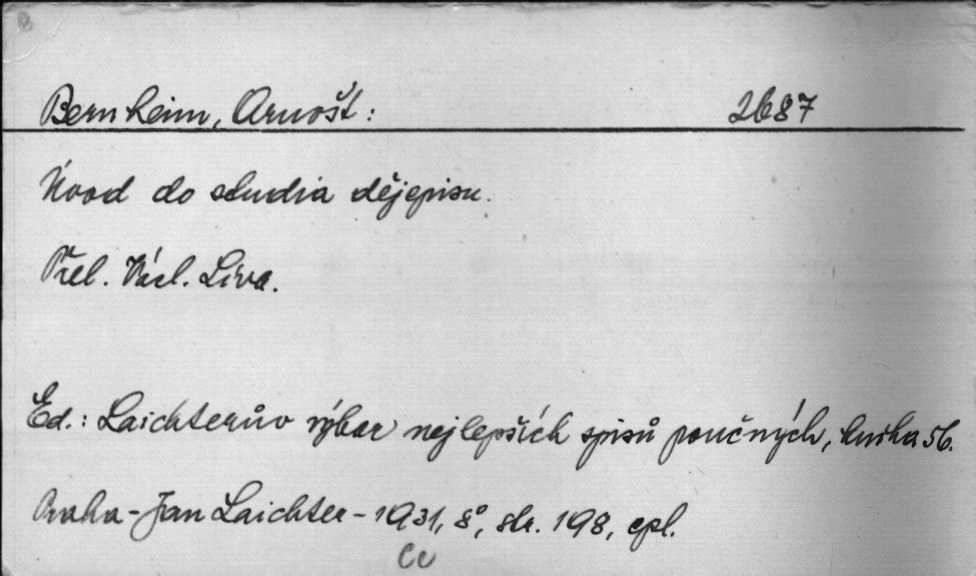 Bernheim, Arnošt: 2687
Úvod do studia dějepisu.
Přel. Václ. Líva.
Ed.: Laichterův výbor nejlepších spisů poučných, kniha 56.
Praha - Jan Laichter - 1931, 8°, str. 198, cpl.